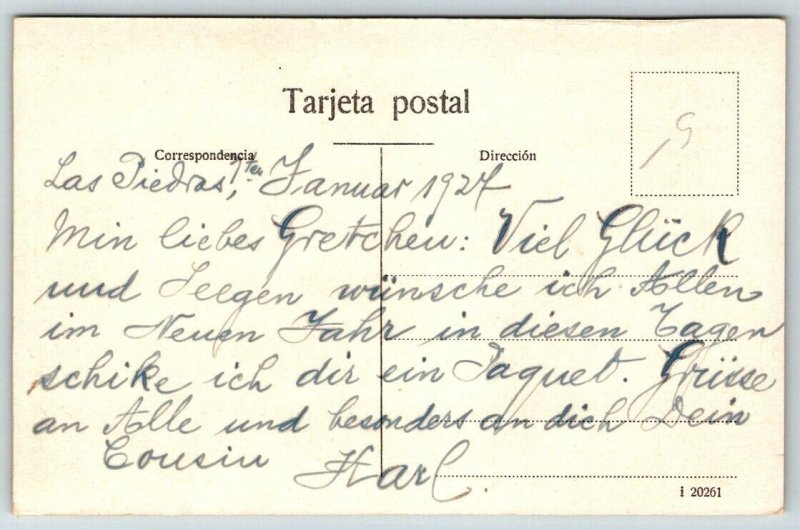 Tarjeta postal
Correspondencia
Dirección
Las Piedras, 1ten Januar 1924
Min liebes Gretchen: Viel Glück
und Seegen wünsche ich Allen
im Neuen Jahr in diesen Tagen
schike ich dir ein Paquet. Grüsse
an Alle und besonders an dich Dein
Cousin Karl.
i 20261